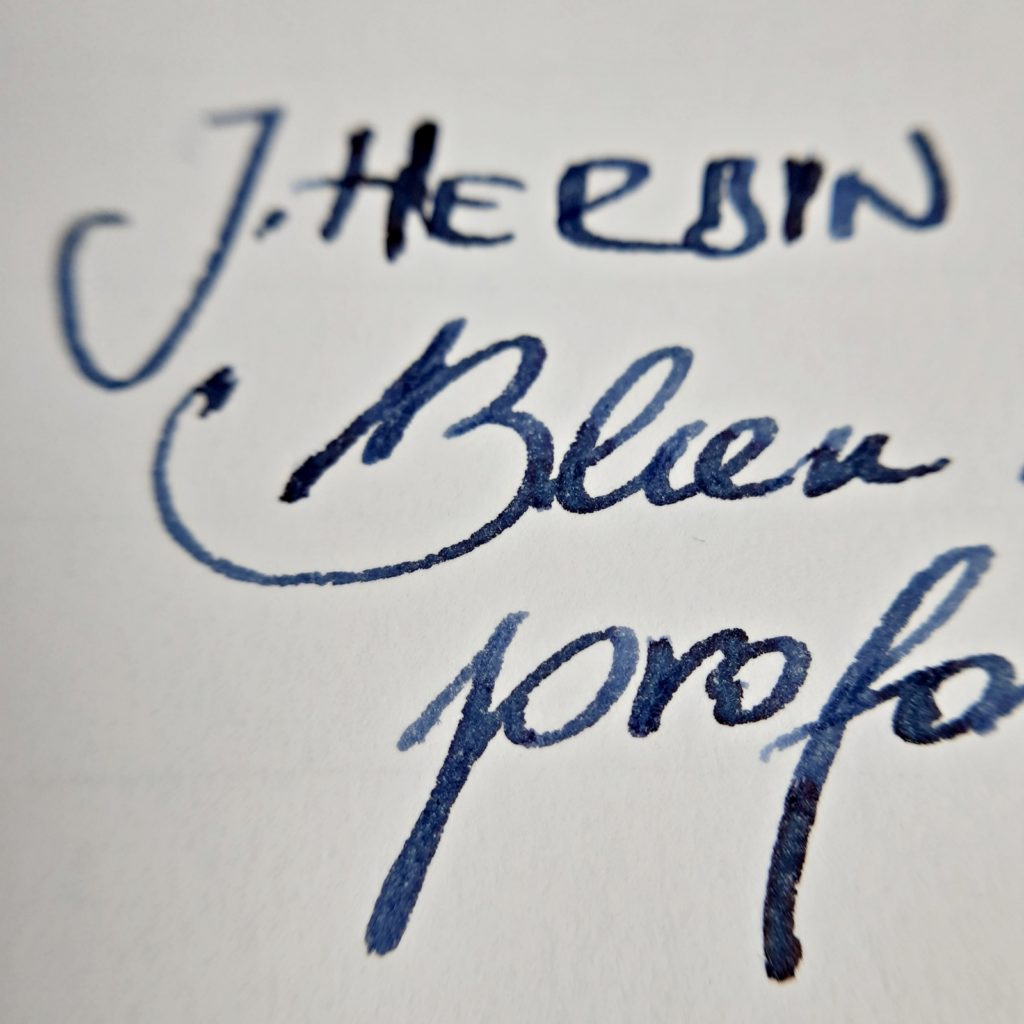 J. HERBIN
Bleu
profo